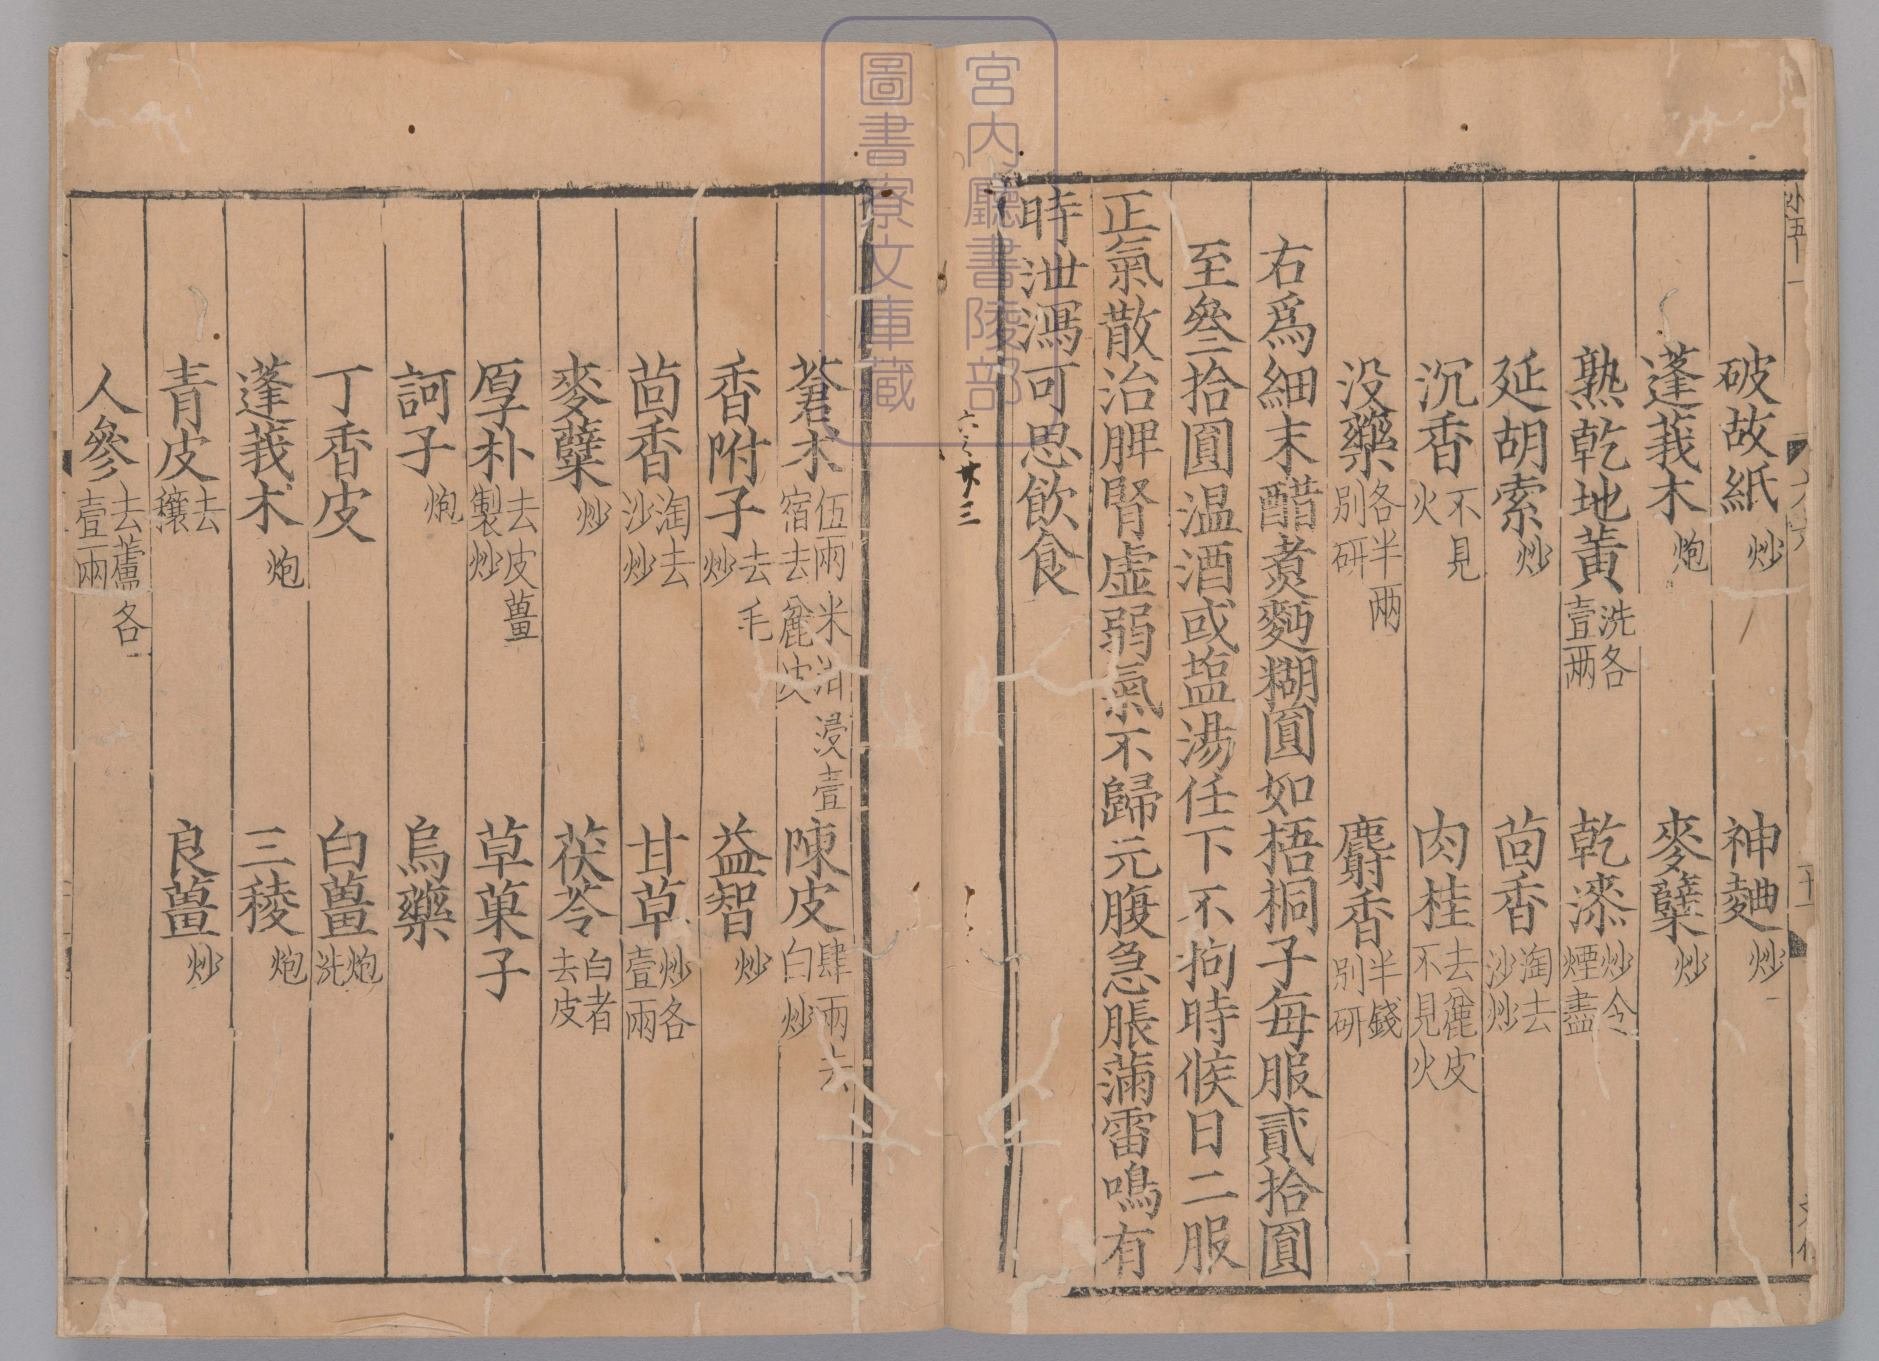 破故紙炒 神麯炒
蓬莪朮炮 麥蘖炒
熟乾地黃洗各壹兩 乾漆炒令煙盡
延胡索炒 茴香淘去沙炒
沉香不見火 肉桂去麄皮不見火
没藥各半兩別研 麝香半錢別研
右爲細末醋煑麪糊圓如梧桐子每服貳拾圓
至叄拾圓温酒或塩湯任下不拘時候日二服
正氣散治脾腎虚弱氣不歸元腹急脹滿雷鳴有
時泄瀉可思飲食
六之廿三
蒼朮伍兩米泔浸壹宿去麄皮 陳皮肆兩去白炒
香附子去毛炒 益智炒
茴香淘去沙炒 甘草炒各壹兩
麥蘖炒 茯苓白者去皮
厚朴去皮薑製炒 草菓子
訶子炮 烏藥
丁香皮 白薑炮洗
蓬莪朮炮 三稜炮
青皮去穰 良薑炒
人參去蘆各壹兩
宮内廳書陵部
圖書寮文庫蔵